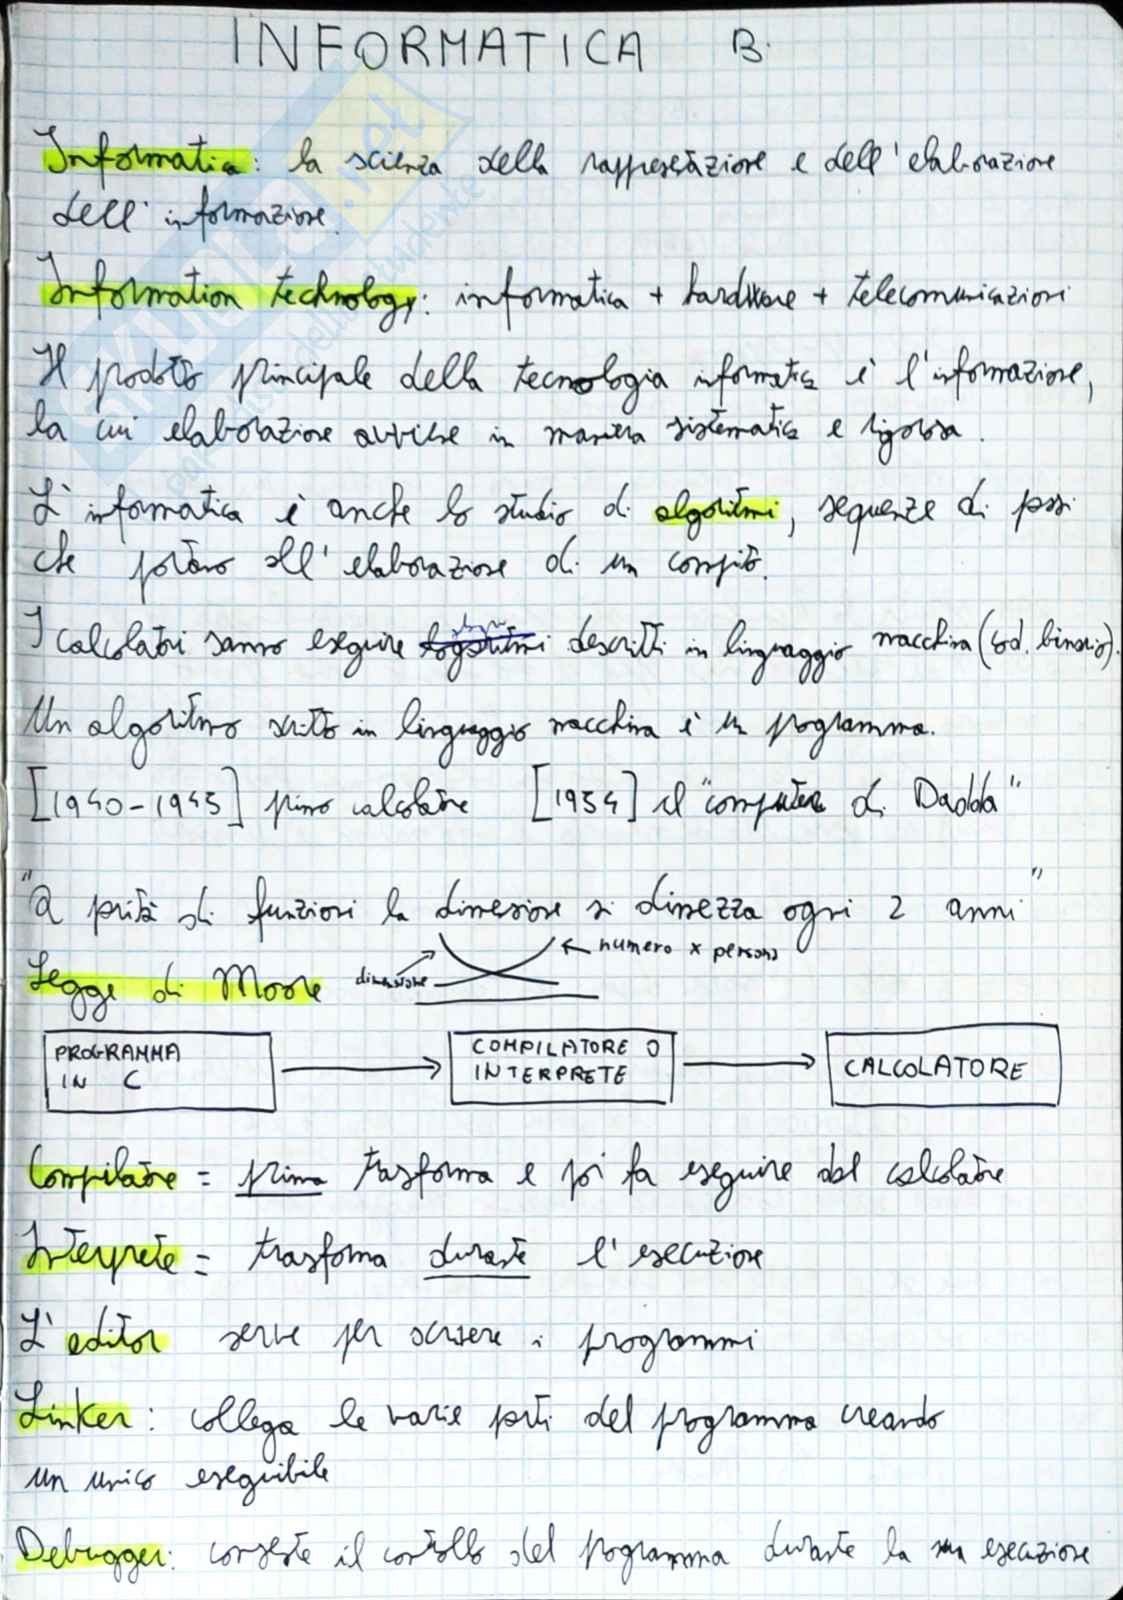 INFORMATICA B.
Informatica: la scienza della rappresetazione e dell'elaborazione
dell'informazione.
Information technology: informatica + hardware + telecomunicazioni
Il prodotto principale della tecnologia informatica è l'informazione,
la cui elaborazione avviene in maniera sistematica e rigorosa.
L'informatica è anche lo studio di algoritmi, sequenze di passi
che portano all'elaborazione di un compito.
I calcolatori sanno eseguire algoritmi descritti in linguaggio macchina (cod. binario).
Un algoritmo scritto in linguaggio macchina è un programma.
[1940-1945] primo calcolatore [1954] il "computer di Dadda"
"A parità di funzioni la dimensione si dimezza ogni 2 anni"
dimensione numero x persona
Legge di Moore
PROGRAMMA COMPILATORE O
IN C INTERPRETE CALCOLATORE
Compilatore = prima trasforma e poi fa eseguire dal calcolatore
Interprete = trasforma durante l'esecuzione
L'editor serve per scrivere i programmi
Linker: collega le varie parti del programma creando
un unico eseguibile
Debugger: consente il controllo del programma durante la sua esecuzione